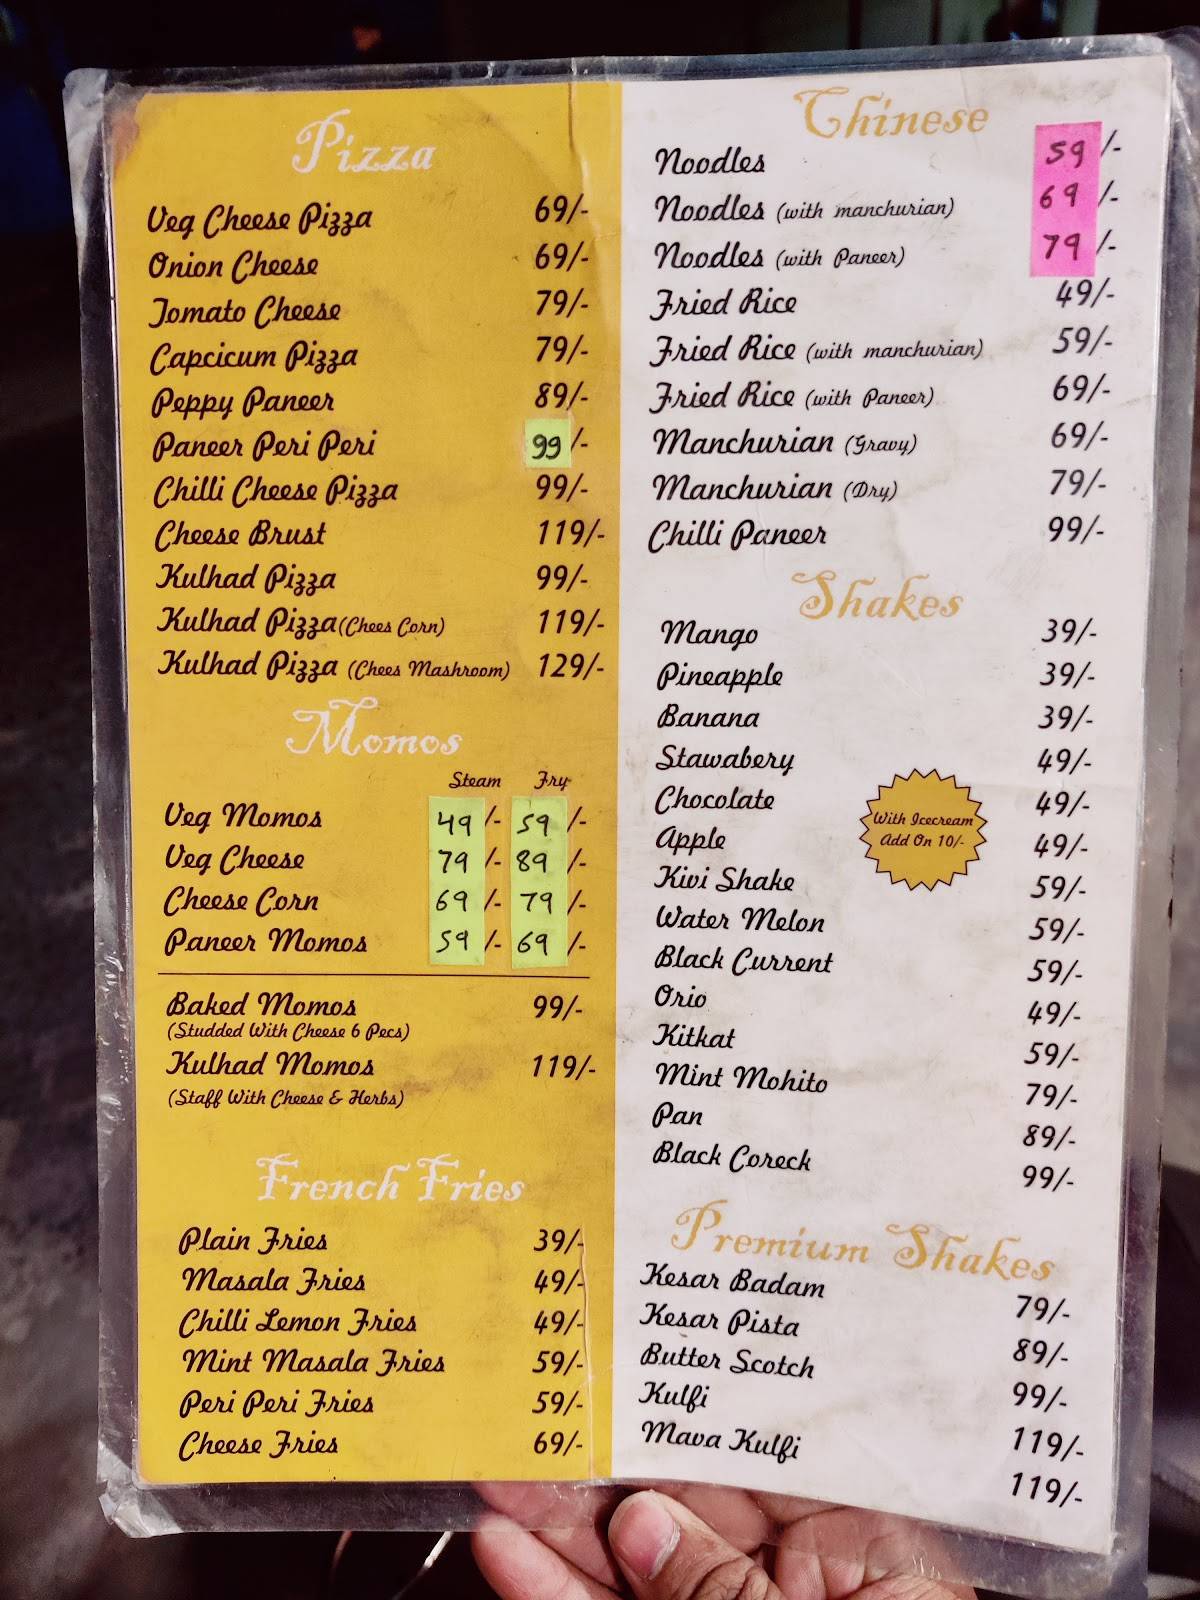 Pizza
Veg Cheese Pizza 69/-
Onion Cheese 69/-
Tomato Cheese 79/-
Capcicum Pizza 79/-
Peppy Paneer 89/-
Paneer Peri Peri 99/-
Chilli Cheese Pizza 99/-
Cheese Brust 119/-
Kulhad Pizza 99/-
Kulhad Pizza (Chees Corn) 119/-
Kulhad Pizza (Chees Mashroom) 129/-
Momos
Steam Fry
Veg Momos 49/- 59/-
Veg Cheese 79/- 89/-
Cheese Corn 69/- 79/-
Paneer Momos 59/- 69/-
Baked Momos 99/-
(Studded With Cheese 6 Pecs)
Kulhad Momos 119/-
(Staff With Cheese & Herbs)
French Fries
Plain Fries 39/-
Masala Fries 49/-
Chilli Lemon Fries 49/-
Mint Masala Fries 59/-
Peri Peri Fries 59/-
Cheese Fries 69/-
Chinese
Noodles 59/-
Noodles (with manchurian) 69/-
Noodles (with Paneer) 79/-
Fried Rice 49/-
Fried Rice (with manchurian) 59/-
Fried Rice (with Paneer) 69/-
Manchurian (Gravy) 69/-
Manchurian (Dry) 79/-
Chilli Paneer 99/-
Shakes
Mango 39/-
Pineapple 39/-
Banana 39/-
Stawabery 49/-
Chocolate 49/-
Apple 49/-
Kivi Shake 59/-
Water Melon 59/-
Black Current 59/-
Orio 49/-
Kitkat 59/-
Mint Mohito 79/-
Pan 89/-
Black Coreck 99/-
With Icecream
Add On 10/-
Premium Shakes
Kesar Badam 79/-
Kesar Pista 89/-
Butter Scotch 99/-
Kulfi 119/-
Mava Kulfi 119/-